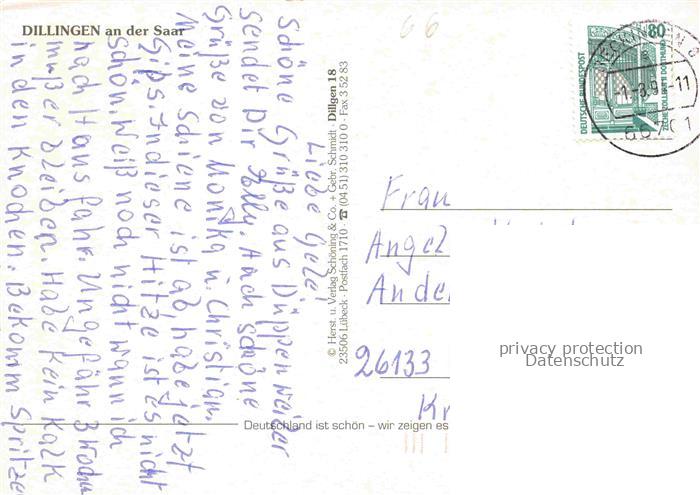 DILLINGEN an der Saar
66
Liebe Gele!
Schöne Grüße aus Düppenweiler
sendet Dir Holly. Auch schöne
Grüße von Monika u. Christian.
Meine Schiene ist ab, habe jetzt
Gips. In dieser Hitze ist es nicht
schön. Weiß noch nicht wann ich
nach Haus fahr. Ungefähr 3 Woch
muß er bleiben. Habe kein Kalk
in den Knochen. Bekomm Spritze
© Herst. u. Verlag Schöning & Co. + Gebr. Schmidt · Dillgen 18
23506 Lübeck · Postfach 1710 · ☎ (04 51) 310 310 0 · Fax 3 52 83
DEUTSCHE BUNDESPOST
80
ZECHE ZOLLERN II DORTMUND
-11
66701
Frau
Angel
Ande
26133
Kr
privacy protection
Datenschutz
Deutschland ist schön – wir zeigen es